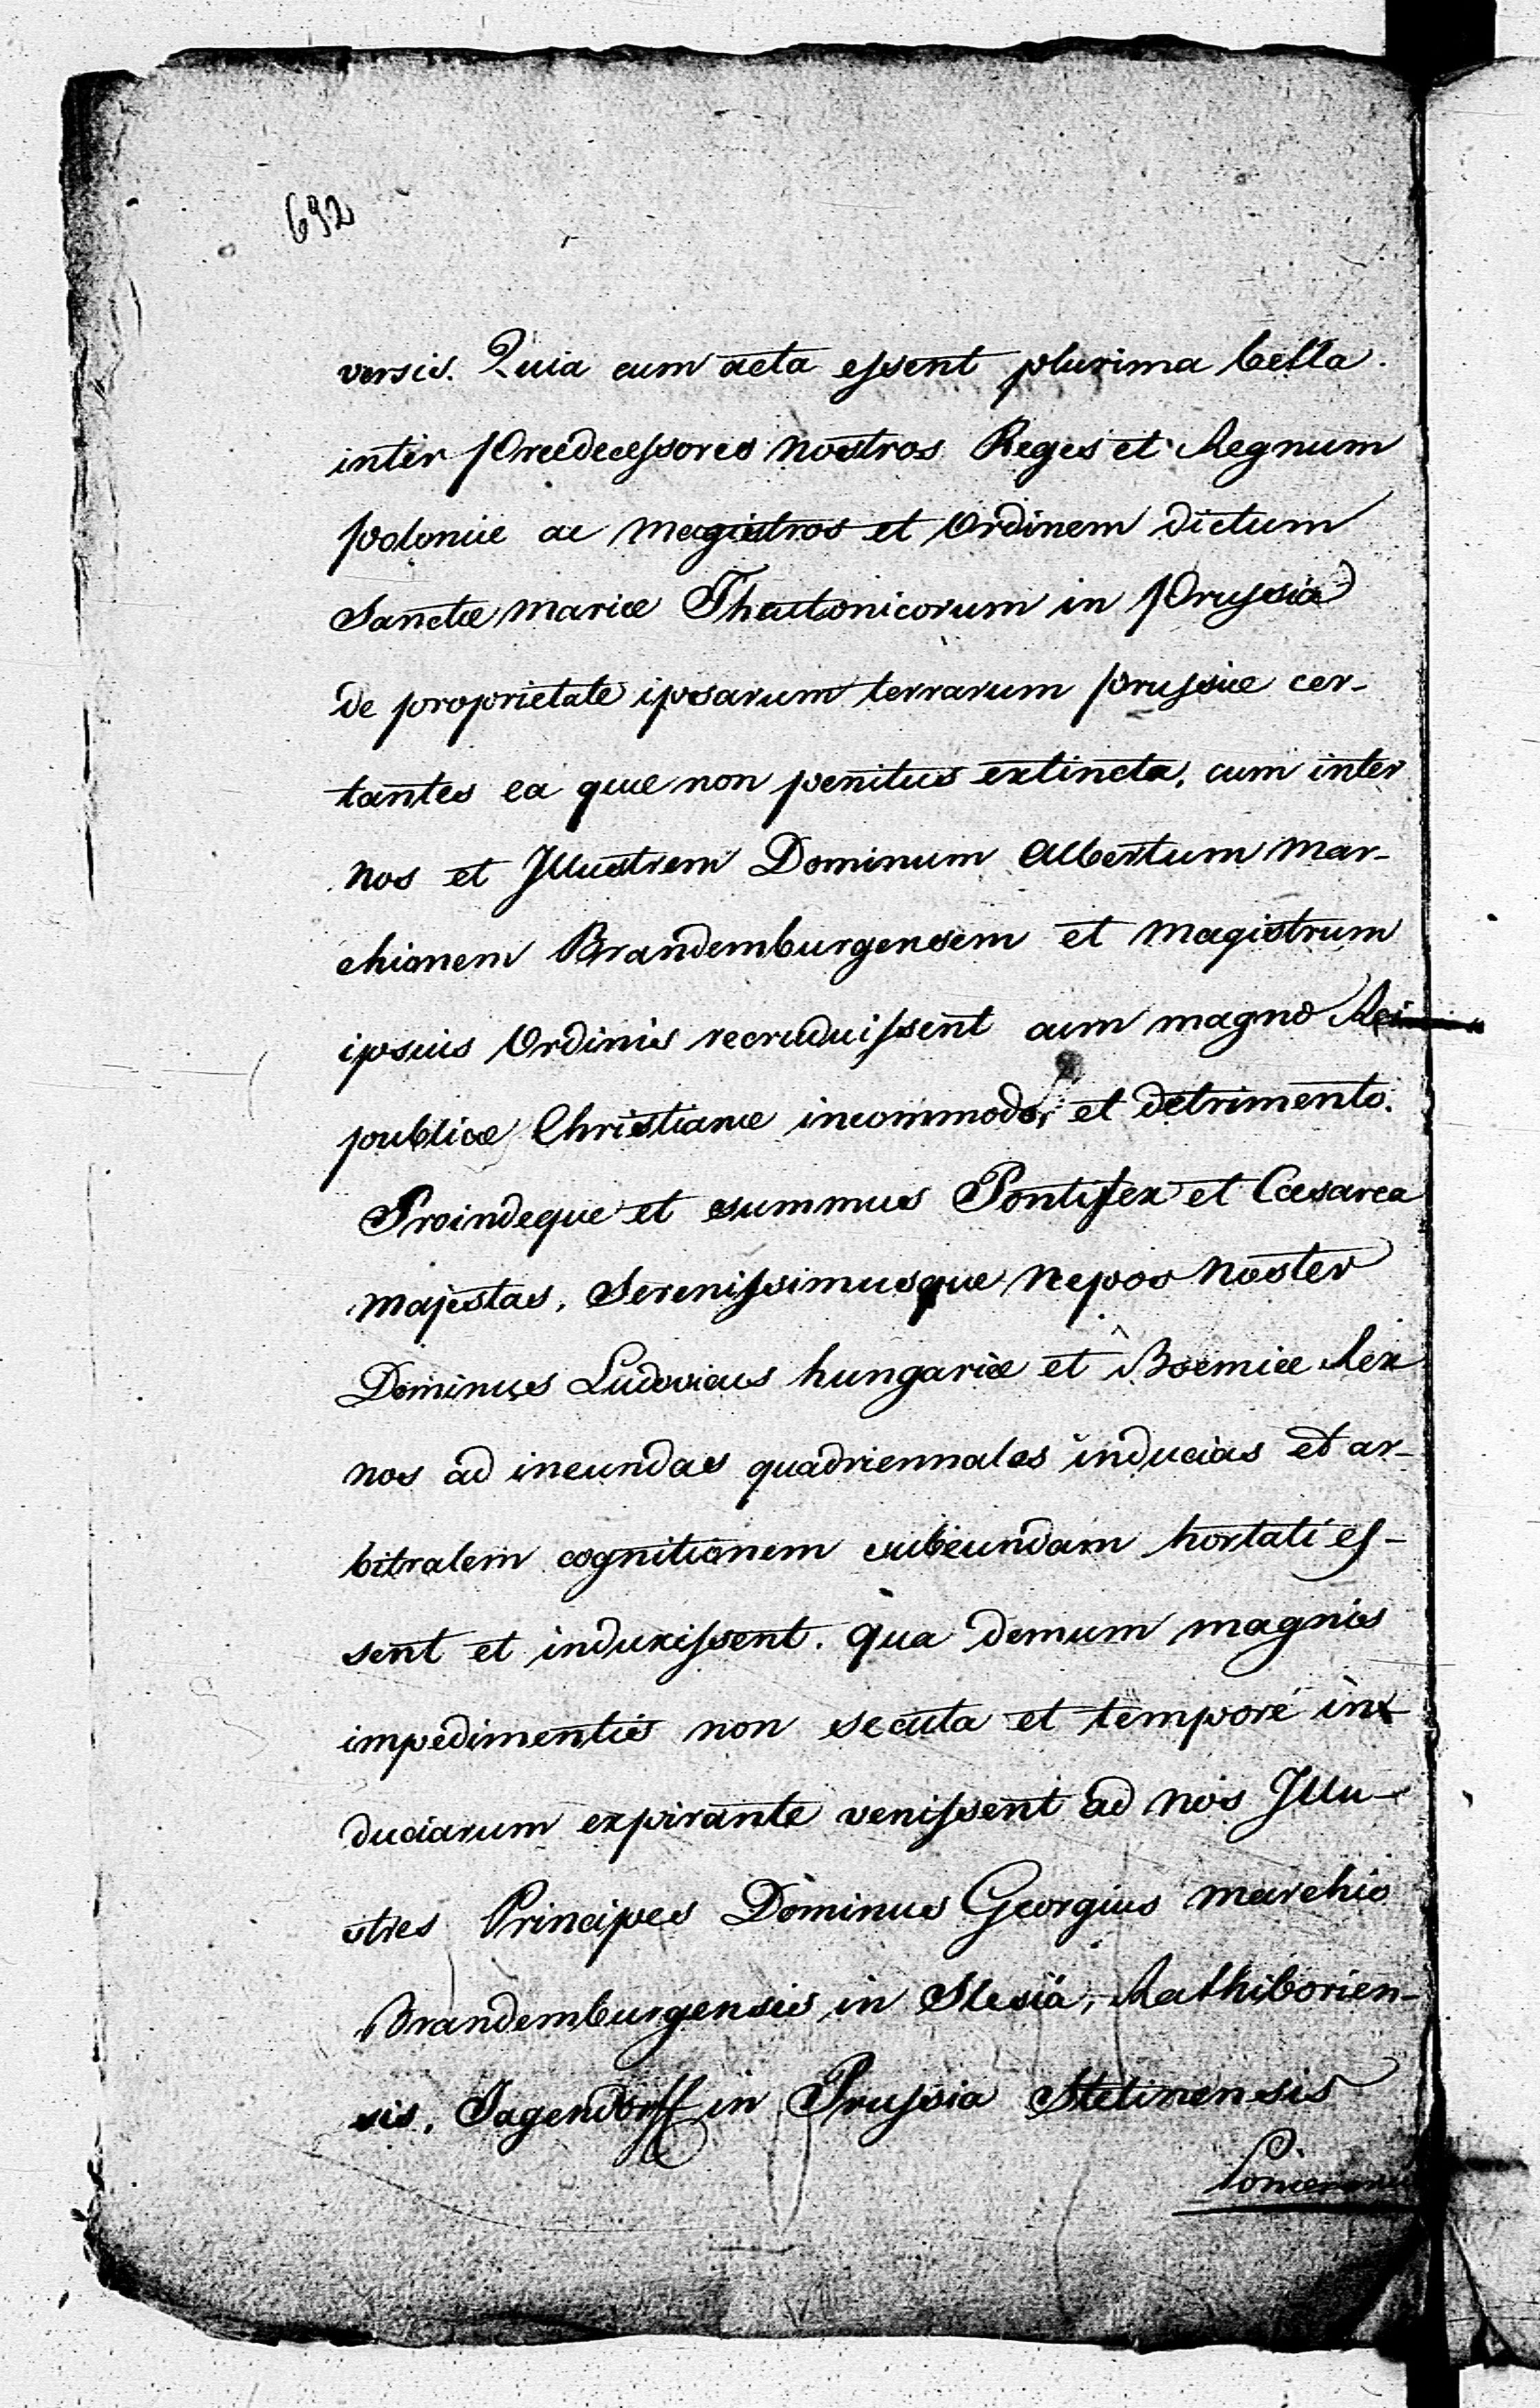 692
versis. Quia cum acta essent plurima bella
inter Prædecessores nostros Reges et Regnum
Poloniæ ac Magistros et Ordinem dictum
Sanctæ Mariæ Theutonicorum in Prussia
de proprietate ipsarum terrarum Prussiæ cer-
tantes ea quæ non penitus extincta, cum inter
nos et Illustrem Dominum Albertum Mar-
chionem Brandemburgensem et Magistrum
ipsius Ordinis recruduissent cum magno Rei
publicæ Christianæ incommodo, et detrimento.
Proindeque et summus Pontifex et Cæsarea
Majestas, Serenissimusque Nepos Noster
Dominus Ludovicus hungariæ et Boemiæ Rex
nos ad ineundas quadriennales inducias et ar-
bitralem cognitionem subeundam hortati es-
sent et induxissent. Qua demum magnis
impedimentis non secuta et tempore in
duciarum expirante venissent ad nos Illu-
stres Principes Dominus Georgius Marchio
Brandemburgensis in Slesia, Rathiborien-
sis, Jagendorff in Prussia Stetinensis